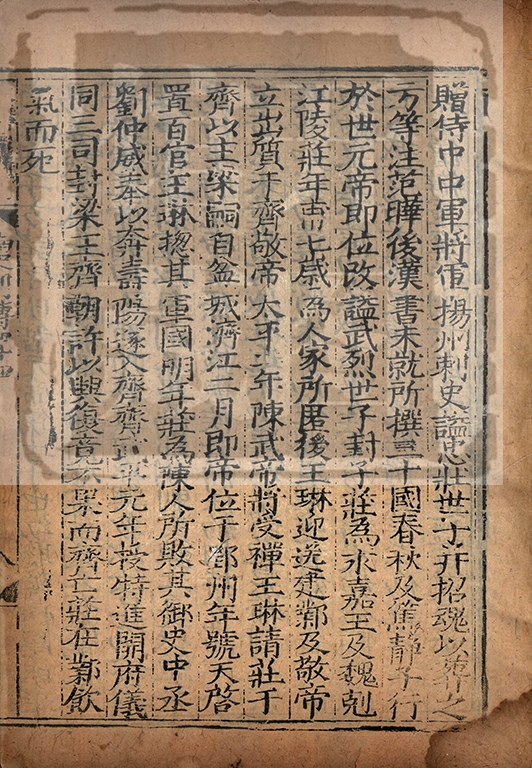 贈侍中中軍將軍揚州刺史謚忠莊世子并招魂以葬之
方等注范曄後漢書未就所撰三十國春秋及篤靜子行
於世元帝即位改謚武烈世子封子莊為永嘉王及魏剋
江陵莊年甫七歲為人家所匿後王琳迎送建鄴及敬帝
立出質于齊敬帝太平二年陳武帝將受禪王琳請莊于
齊以主梁嗣自盆城濟江二月即帝位于郢州年號天啓
置百官王琳揔其軍國明年莊為陳人所敗其御史中丞
劉仲威奉以奔壽陽遂入齊齊武平元年授特進開府儀
同三司封梁王齊朝許以興復竟不果而齊亡莊在鄴飲
氣而死